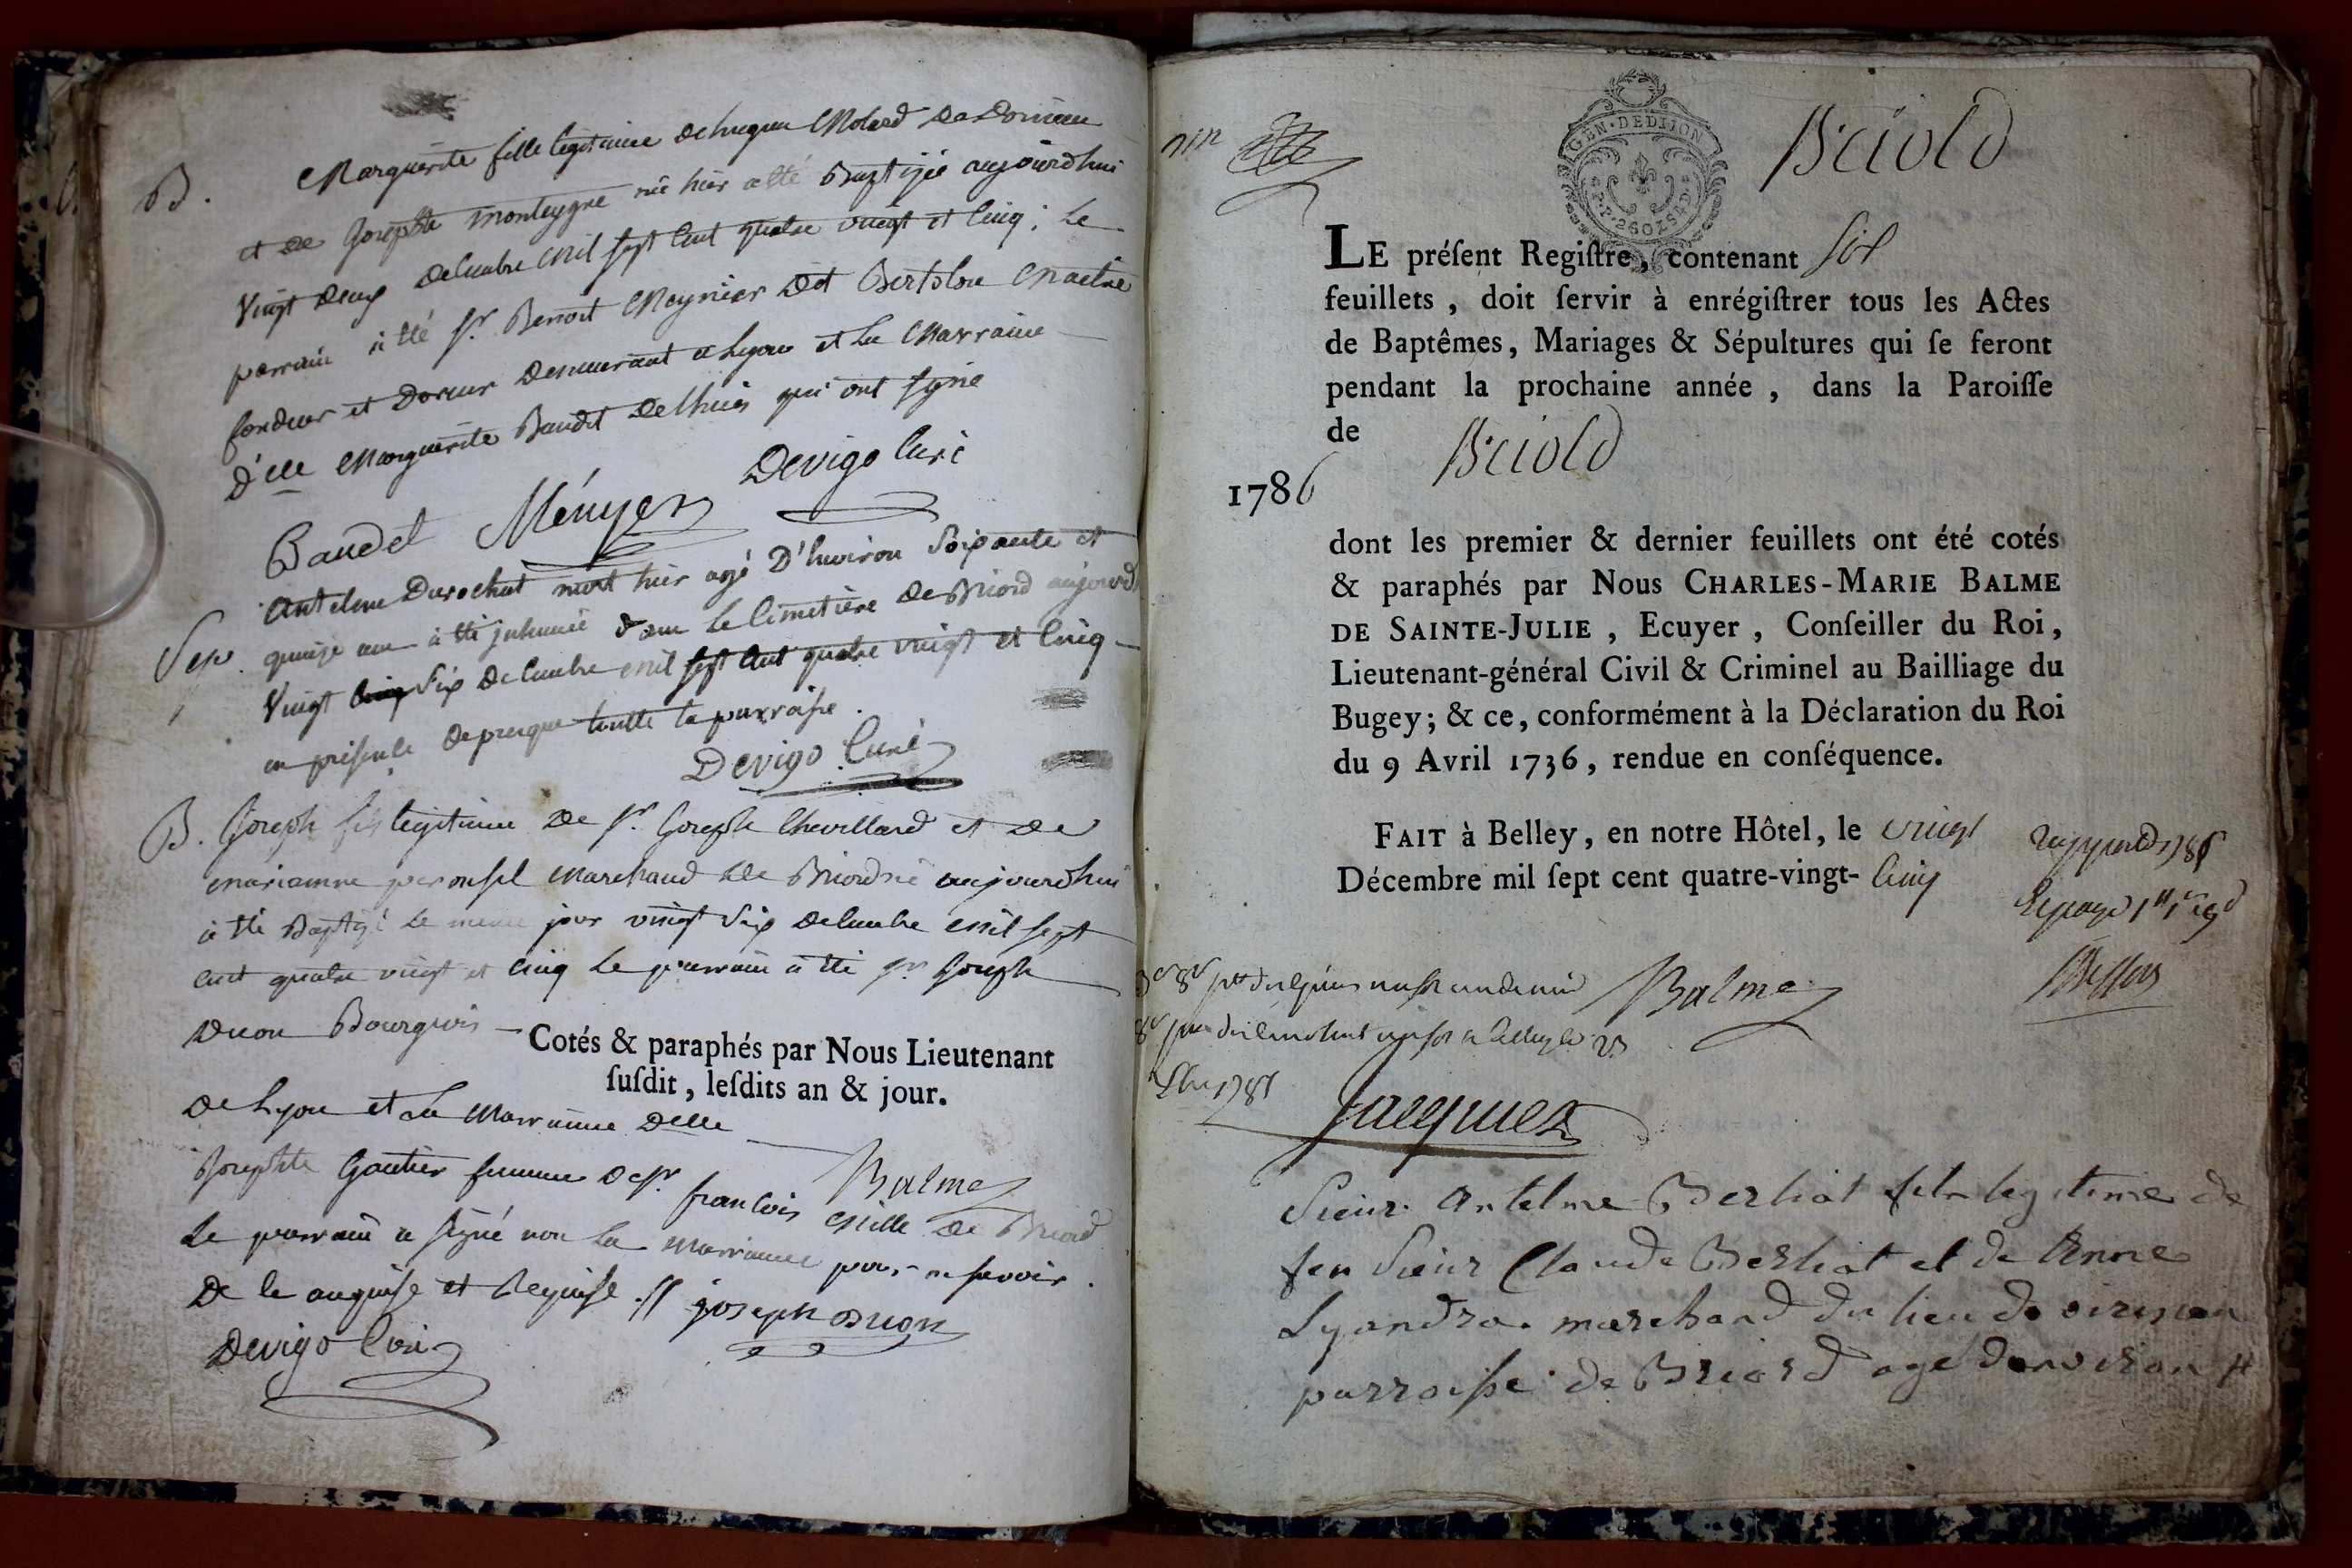 B. Marguerite fille legitime de hugue Molard de Dornieu
et de Josephte monteygne née hier a été Baptizée aujourdhui
vingt deux decembre mil sept cent quatre vingt et cinq; le
parrain à été Sr. Benoit Meynier dit Bertolon maitre
fondeur et Doreur demeurant a Lyon et la Marraine
D'elle Marguerite Baudet de lhuis qui ont signé
Baudet Ményer Devigo Curé
Sep. Antelme Durochat mort hier agé D'huviron soixante et
quinze ans à été inhumé dans le cimetière de Briord aujourd
vingt cinq six decembre mil sept cent quatre vingt et cinq
en présence de presque toutte la parroisse.
Devigo Curé
B. Joseph fils legitime de Sr. Joseph Chevillard et de
marianne peronsel marchand de Briord né aujourdhui
à été Baptizé le meme jour vingt six decembre mil sept
cent quatre vingt et cinq le parrain à été Sr Joseph
Duon Bourgeois
Cotés & paraphés par Nous Lieutenant
susdit, lesdits an & jour.
de Lyon et la Marraine Delle
Balme
Josephte Gautier femme de Sr. francois Mille de Briord
le parrain a signé non la marraine pour ne savoir
de ce enquise et Requise .// joseph Duon
Devigo Curé
GEN. DE DIJON
Briord
LE présent Registre, contenant six
feuillets, doit servir à enrégistrer tous les Actes
de Baptêmes, Mariages & Sépultures qui se feront
pendant la prochaine année, dans la Paroisse
de Briord
1786
dont les premier & dernier feuillets ont été cotés
& paraphés par Nous CHARLES-MARIE BALME
DE SAINTE-JULIE, Ecuyer, Conseiller du Roi,
Lieutenant-général Civil & Criminel au Bailliage du
Bugey; & ce, conformément à la Déclaration du Roi
du 9 Avril 1736, rendue en conséquence.
FAIT à Belley, en notre Hôtel, le vingt
Décembre mil sept cent quatre-vingt-cinq
Balme
Jacquier
Sieur Antelme Berliat fils legitime de
feu Sieur Claude Berliat et de Anne
Lyandra marchand du lieu de
parroisse de Briord agé denviron